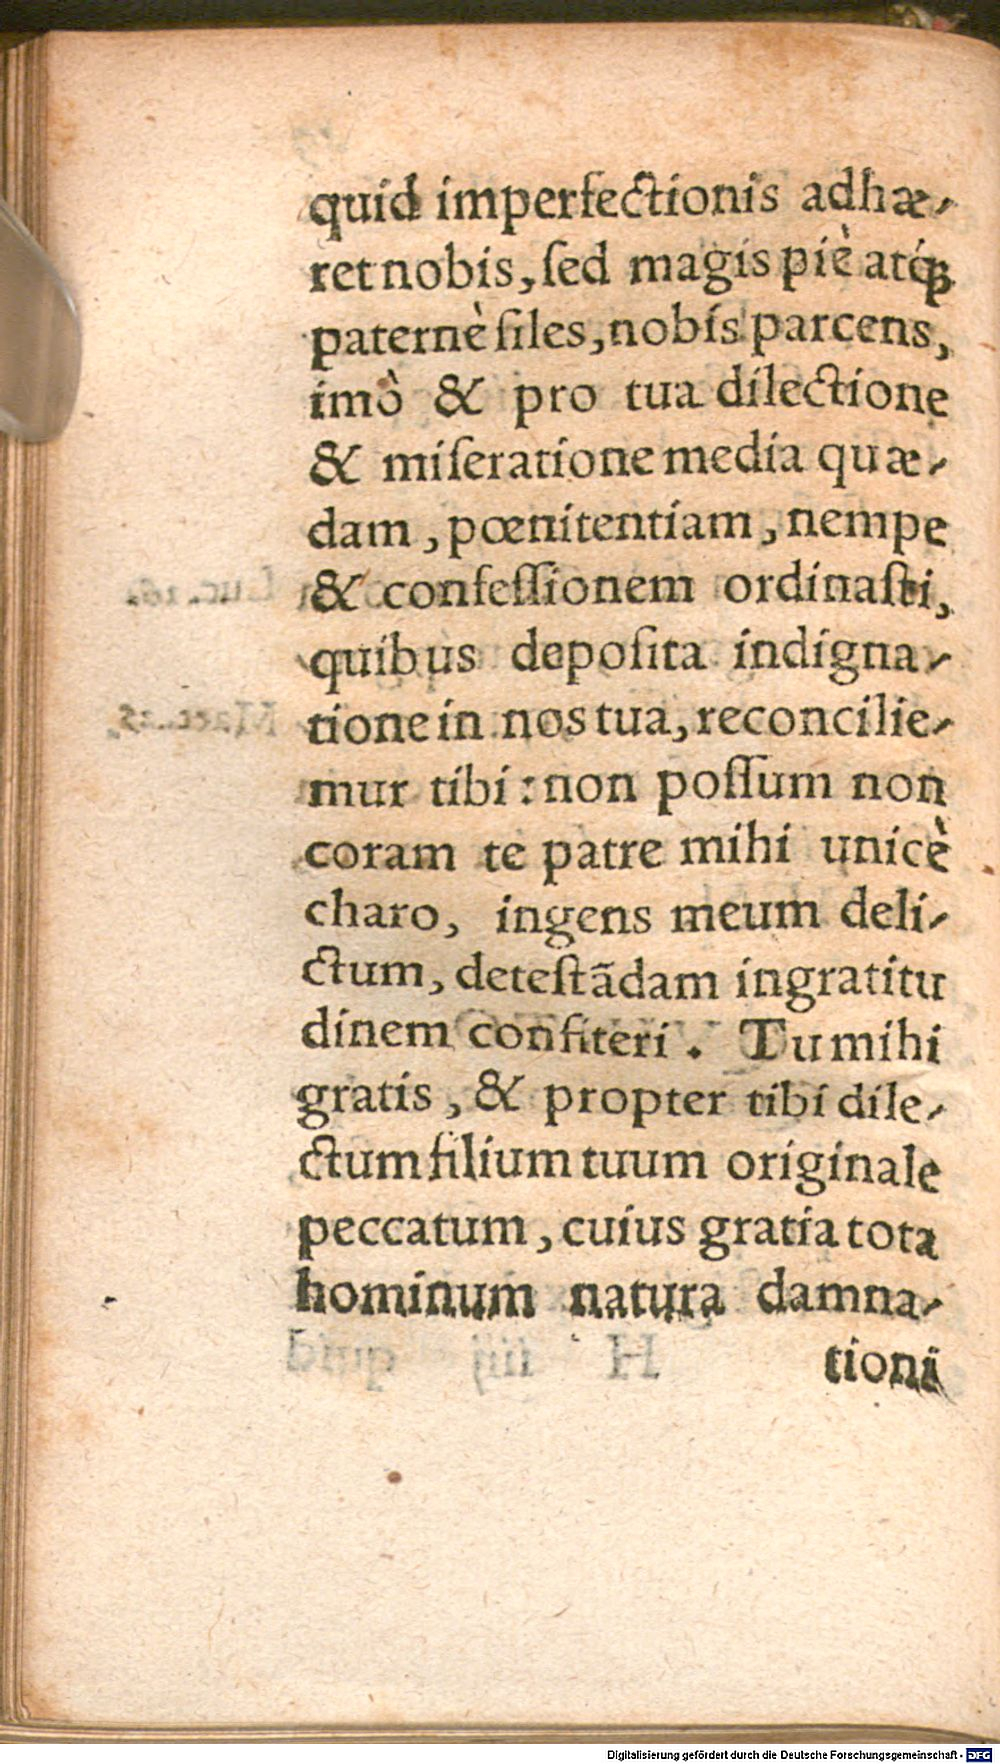 quid imperfectionis adhæ-
ret nobis, ſed magis piè atq́ꝫ
paternè ſiles, nobis parcens,
imò & pro tua dilectione
& miſeratione media quæ-
dam, pœnitentiam, nempe
& confeſſionem ordinaſti,
quibus depoſita indigna-
tione in nos tua, reconcilie-
mur tibi: non poſſum non
coram te patre mihi unicè
charo, ingens meum deli-
ctum, deteſtãdam ingratitu
dinem confiteri. Tu mihi
gratis, & propter tibi dile-
ctum filium tuum originale
peccatum, cuius gratia tota
hominum natura damna-
tioni
Digitalisierung gefördert durch die Deutsche Forschungsgemeinschaft - DFG